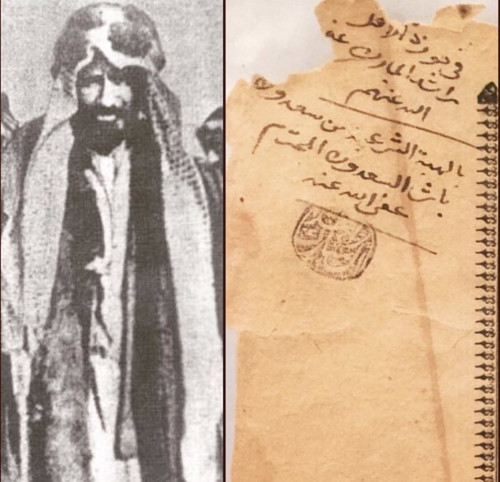 في حوزة الاقل
راشد المبارك عنه
الله عنهم
بالهبة الشرعية من سعدون
باشا السعدون المحترم
عفى الله عنه